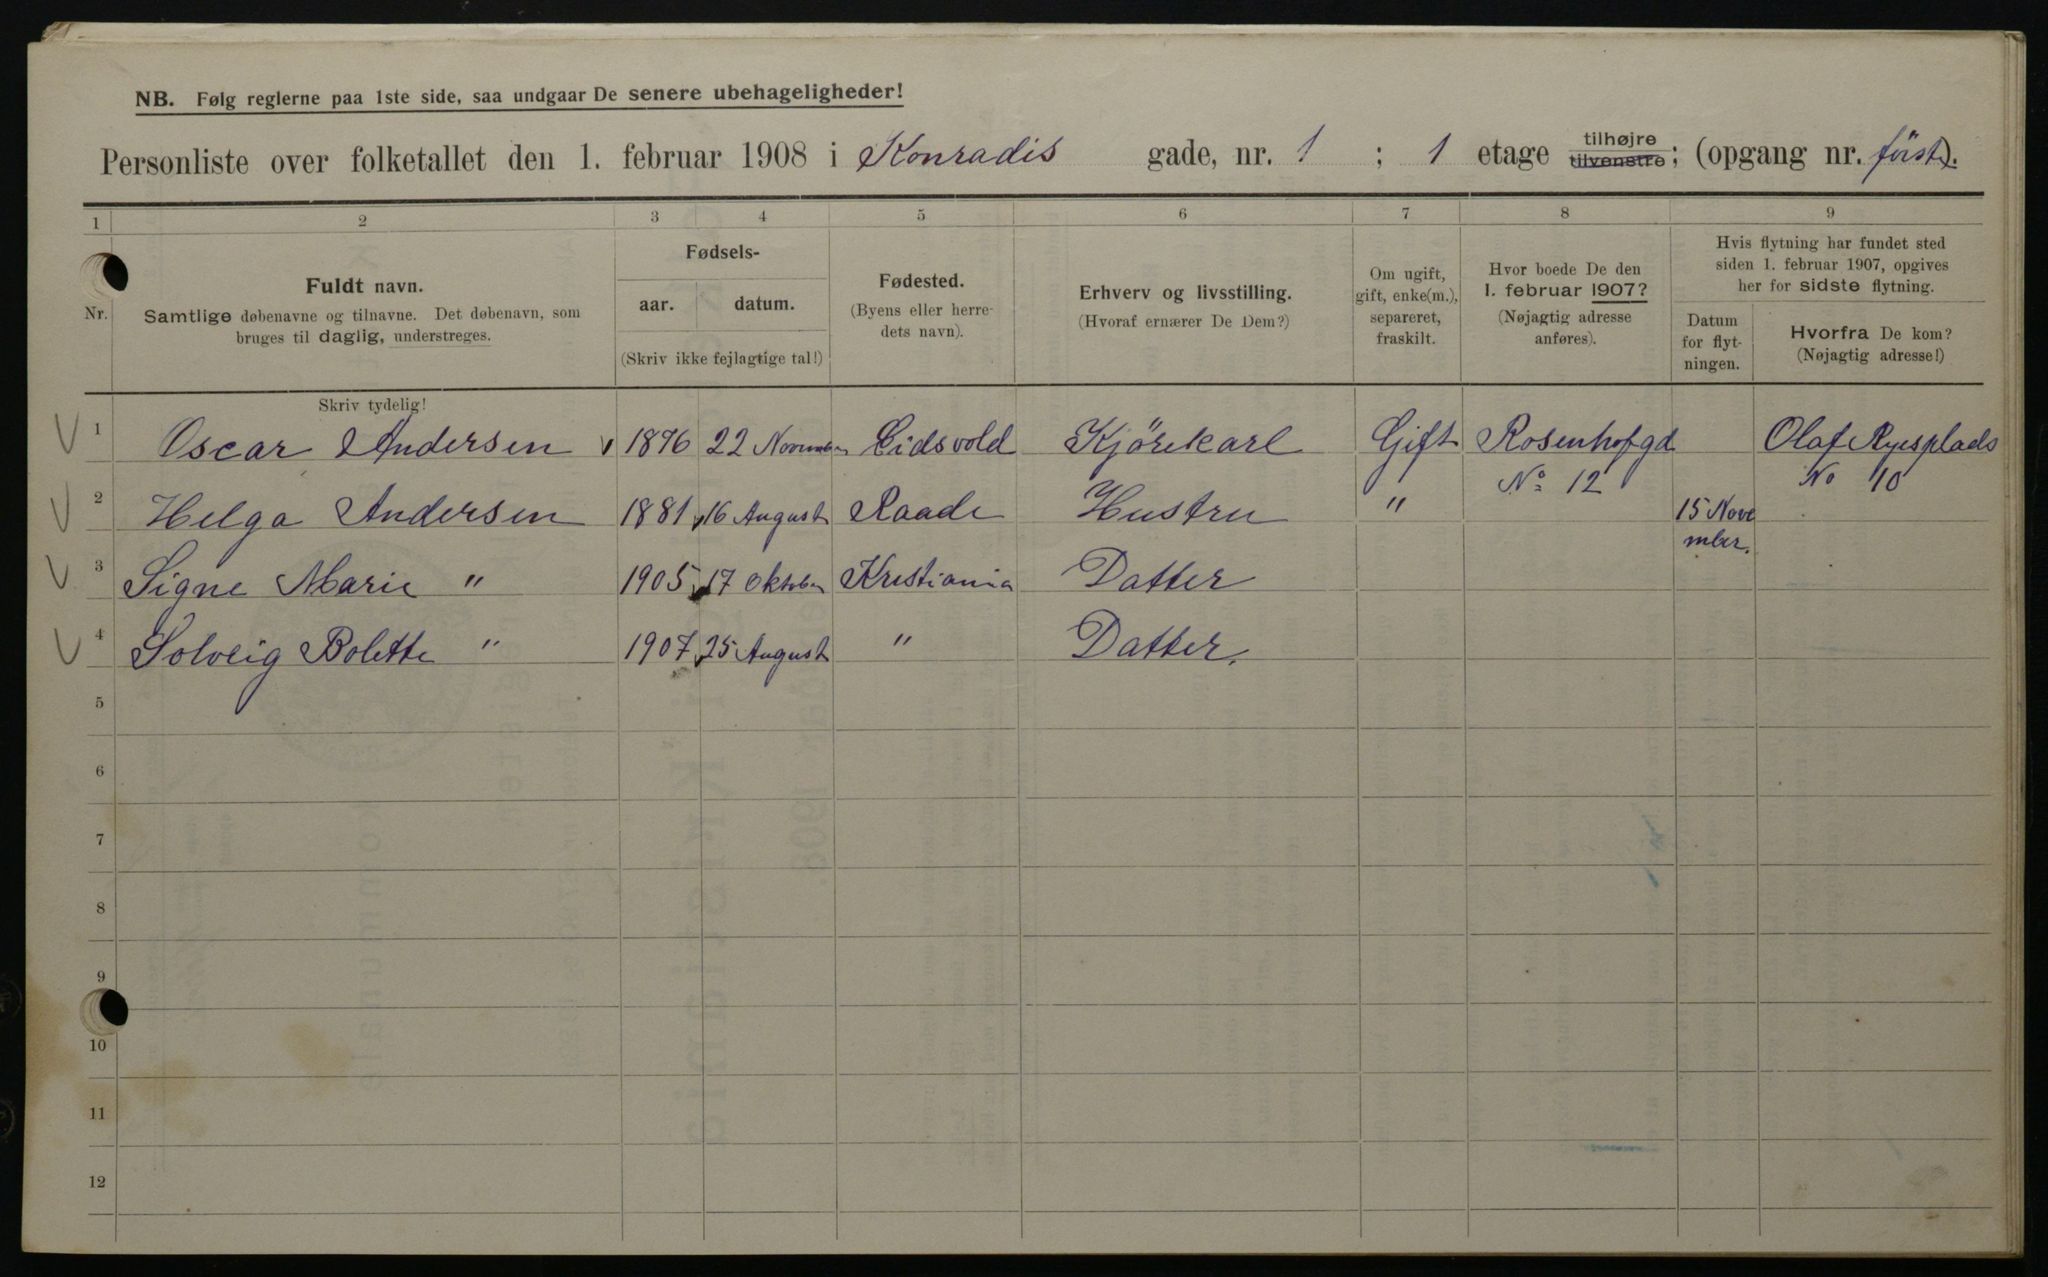 NB. Følg reglerne paa 1ste side, saa undgaar De senere ubehageligheder!
Personliste over folketallet den 1. februar 1908 i Konradis gade, nr. 1 ; 1 etage tilhøjre tilvenstre; (opgang nr. först).
1 2 3 4 5 6 7 8 9
Nr.
Fuldt navn.
Samtlige døbenavne og tilnavne. Det døbenavn, som
bruges til daglig, understreges.
Fødsels-
aar. datum.
(Skriv ikke fejlagtige tal!)
Fødested.
(Byens eller herre-
dets navn).
Erhverv og livsstilling.
(Hvoraf ernærer De Dem?)
Om ugift,
gift, enke(m.),
separeret,
fraskilt.
Hvor boede De den
1. februar 1907?
(Nøjagtig adresse
anføres).
Hvis flytning har fundet sted
siden 1. februar 1907, opgives
her for sidste flytning.
Datum
for flyt-
ningen.
Hvorfra De kom?
(Nøjagtig adresse!)
Skriv tydelig!
1 Oscar Andersen 1876 22 November Eidsvold Kjörekarl Gift Rosenhofgd Olaf Ryesplads
No 12 No 10
2 Helga Andersen 1881 16 August Raade Hustru " 15 Nove
mber.
3 Signe Marie " 1905 17 Oktober Kristiania Datter
4 Solveig Bolette " 1907 25 August " Datter.
5
6
7
8
9
10
11
12